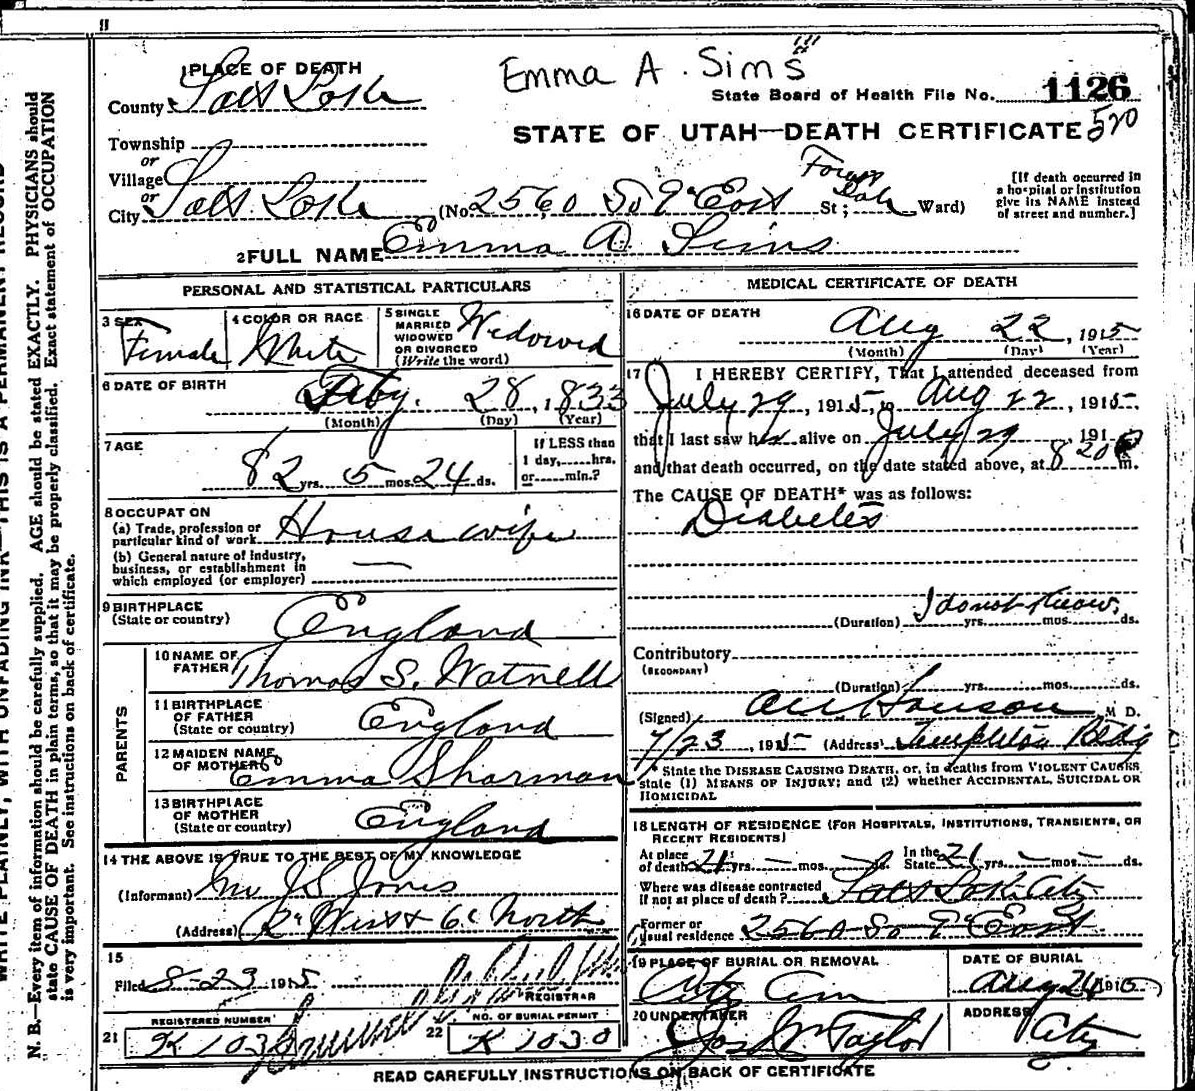 Emma A. Sims
1 PLACE OF DEATH
County Salt Lake
State Board of Health File No. 1126
Township
STATE OF UTAH—DEATH CERTIFICATE 520
or
Village
or
City Salt Lake (No. 2560 So 9 East St; Forest Dale Ward)
[If death occurred in a hospital or institution give its NAME instead of street and number.]
2 FULL NAME Emma A. Sims
PERSONAL AND STATISTICAL PARTICULARS
3 SEX Female
4 COLOR OR RACE White
5 SINGLE MARRIED WIDOWED OR DIVORCED (Write the word) Widowed
6 DATE OF BIRTH Feby. 28, 1833
(Month) (Day) (Year)
7 AGE 82 yrs. 5 mos. 24 ds.
If LESS than 1 day, hrs. or min.?
8 OCCUPATON
(a) Trade, profession or particular kind of work House wife
(b) General nature of Industry, business, or establishment in which employed (or employer) —
9 BIRTHPLACE (State or country) England
PARENTS
10 NAME OF FATHER Thomas S. Watnell
11 BIRTHPLACE OF FATHER (State or country) England
12 MAIDEN NAME OF MOTHER Emma Sharman
13 BIRTHPLACE OF MOTHER (State or country) England
14 THE ABOVE IS TRUE TO THE BEST OF MY KNOWLEDGE
(Informant) J S Jones
(Address) 2 West & 6 North
15
Filed 8-23 1915
REGISTRAR
REGISTERED NUMBER
21 K 1030
NO. OF BURIAL PERMIT
22 K 1030
MEDICAL CERTIFICATE OF DEATH
16 DATE OF DEATH Aug 22, 1915
(Month) (Day) (Year)
17 I HEREBY CERTIFY, That I attended deceased from
July 29, 1915, to Aug 22, 1915.
that I last saw her alive on July 29, 191
and that death occurred, on the date stated above, at 8 20 m.
The CAUSE OF DEATH* was as follows:
Diabetes
I do not know.
(Duration) yrs. mos. ds.
Contributory
(SECONDARY)
(Duration) yrs. mos. ds.
(Signed) Hanson M D.
1915 (Address) Templeton Bldg
* State the DISEASE CAUSING DEATH, or, in deaths from VIOLENT CAUSES, state (1) MEANS OF INJURY; and (2) whether ACCIDENTAL, SUICIDAL OR HOMICIDAL
18 LENGTH OF RESIDENCE (FOR HOSPITALS, INSTITUTIONS, TRANSIENTS, OR RECENT RESIDENTS)
At place of death 21 yrs. — mos. — ds. In the State 21 yrs. — mos. — ds.
Where was disease contracted If not at place of death? Salt Lake City
Former or usual residence 2560 So 9 East
19 PLACE OF BURIAL OR REMOVAL City Cem
DATE OF BURIAL Aug 24 1915
20 UNDERTAKER Jos Wm Taylor
ADDRESS City
READ CAREFULLY INSTRUCTIONS ON BACK OF CERTIFICATE
WRITE PLAINLY, WITH UNFADING INK—THIS IS A PERMANENT RECORD
N. B.—Every item of information should be carefully supplied. AGE should be stated EXACTLY. PHYSICIANS should
state CAUSE OF DEATH in plain terms, so that it may be properly classified. Exact statement of OCCUPATION
is very important. See instructions on back of certificate.